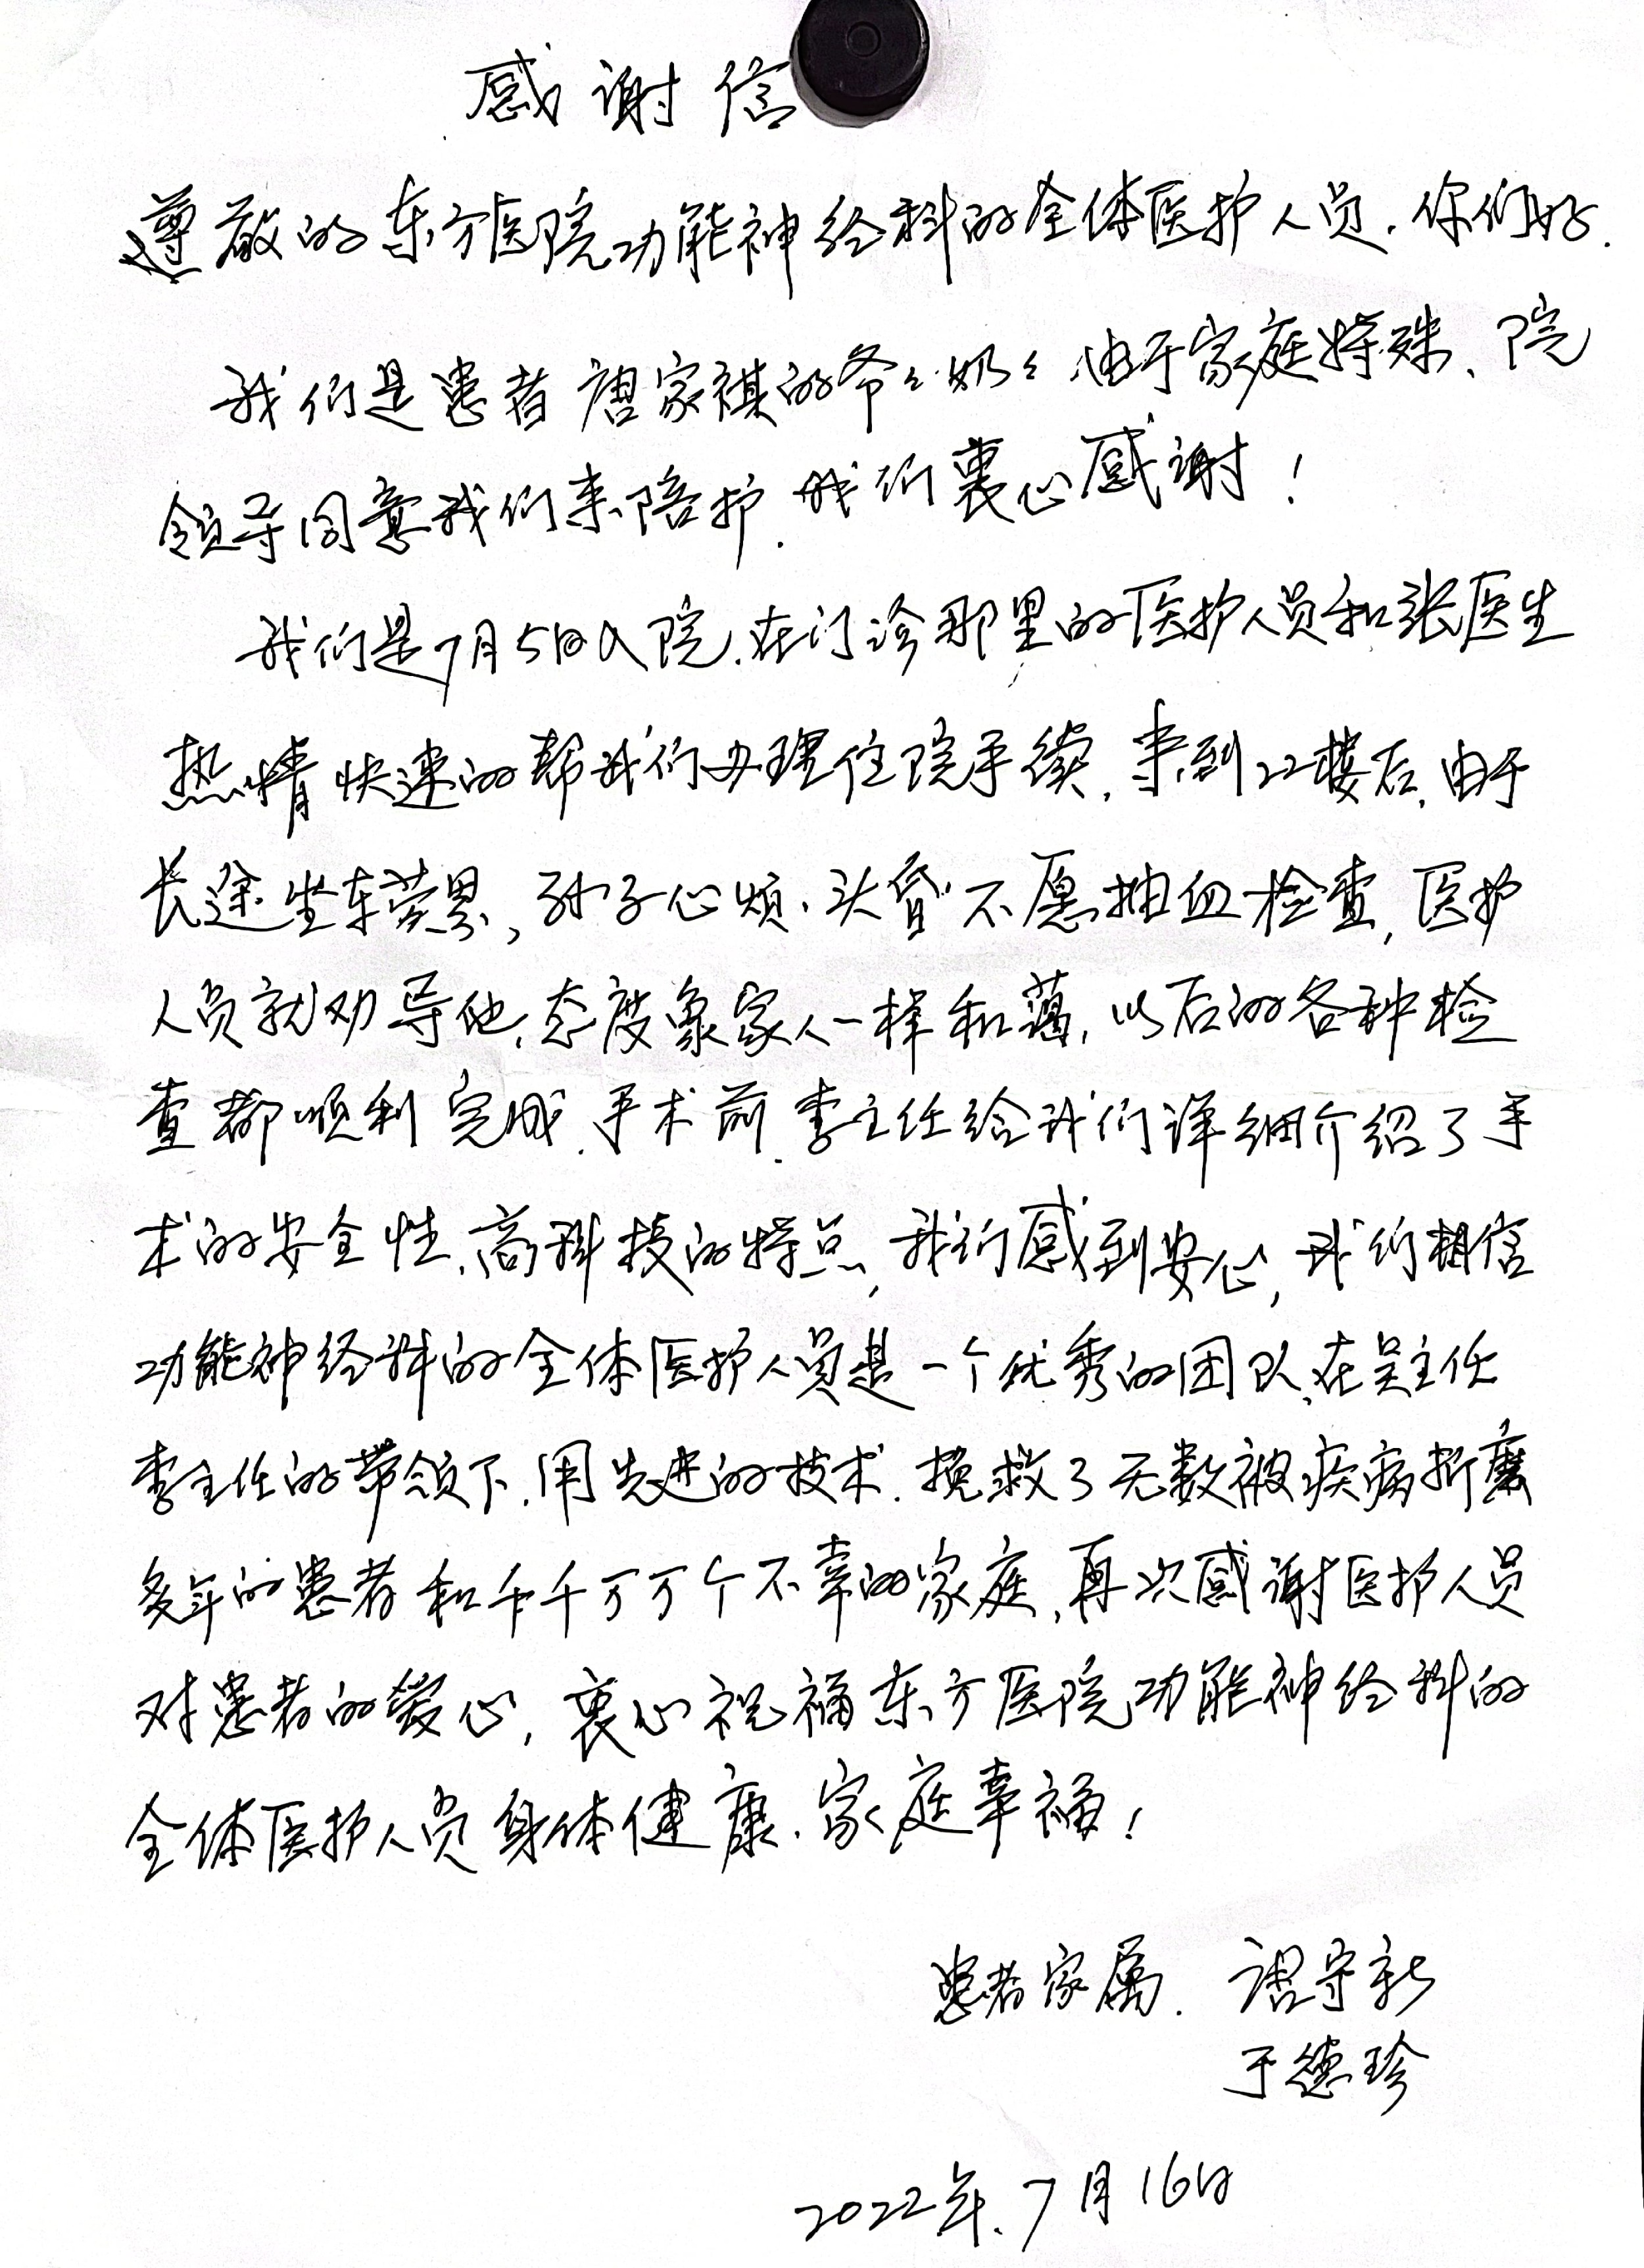 感谢信
遵敬的东方医院功能神经科的全体医护人员.你们好.
我们是患者唐家祺的爷々奶々.由于家庭特殊、院
领导同意我们来陪护.我们衷心感谢!
我们是7月5日入院.在门诊那里的医护人员和张医生
热情快速的帮我们办理住院手续.来到22楼后.由于
长途坐车劳累,孙子心烦.头昏不愿抽血检查,医护
人员就劝导他.态度象家人一样和蔼.以后的各种检
查都顺利完成.手术前.李主任给我们详细介绍了手
术的安全性、高科技的特点,我们感到安心,我们相信
功能神经科的全体医护人员是一个优秀的团队.在吴主任
李主任的带领下.用先进的技术.挽救了无数被疾病折磨
多年的患者和千千万万个不幸的家庭.再次感谢医护人员
对患者的爱心,衷心祝福东方医院功能神经科的
全体医护人员身体健康.家庭幸福!
患者家属.守新
于德珍
2022年.7月16日